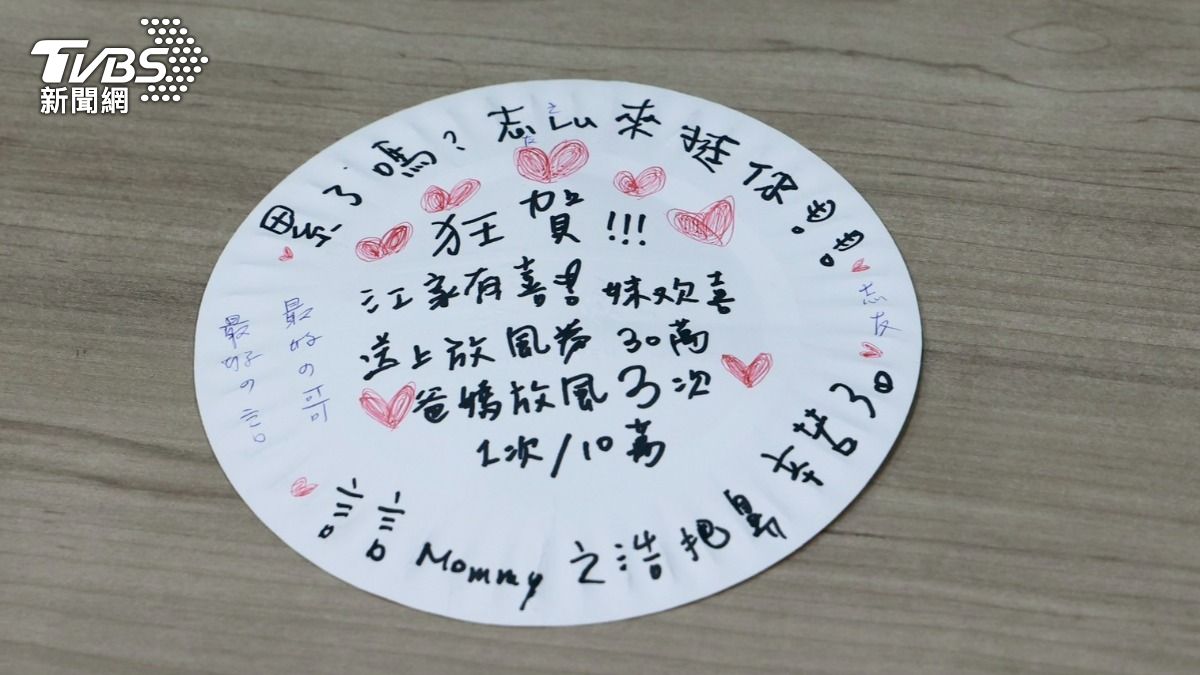 TVBS
新聞網
累了嗎？志Lu來挺你
之
友
狂賀!!!
江家有喜 妹欢喜
送上放風券 30萬
爸媽放風3次
1次/10萬
志友
最好の哥
最好の言
言言 Mommy 之浩把鼻辛苦了